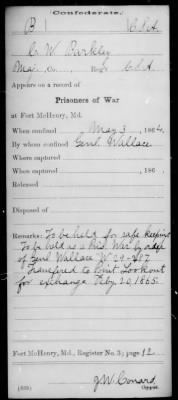 Confederate.
B | C.S.A.
C. W. Barkley
Maj., Co. , Reg't C.S.A.
Appears on a record of
Prisoners of War
at Fort McHenry, Md.
When confined May 3, 1864.
By whom confined Genl. Wallace
Where captured
When captured , 186 .
Released
Disposed of
Remarks: To be held for safe keeping
To be held as a Pris. War by order
of Genl Wallace
Transfered to Point Lookout
for exchange Feby. 20, 1865.
Fort McHenry, Md., Register No. 3; page 12
(639) J W Conard
Copyist.